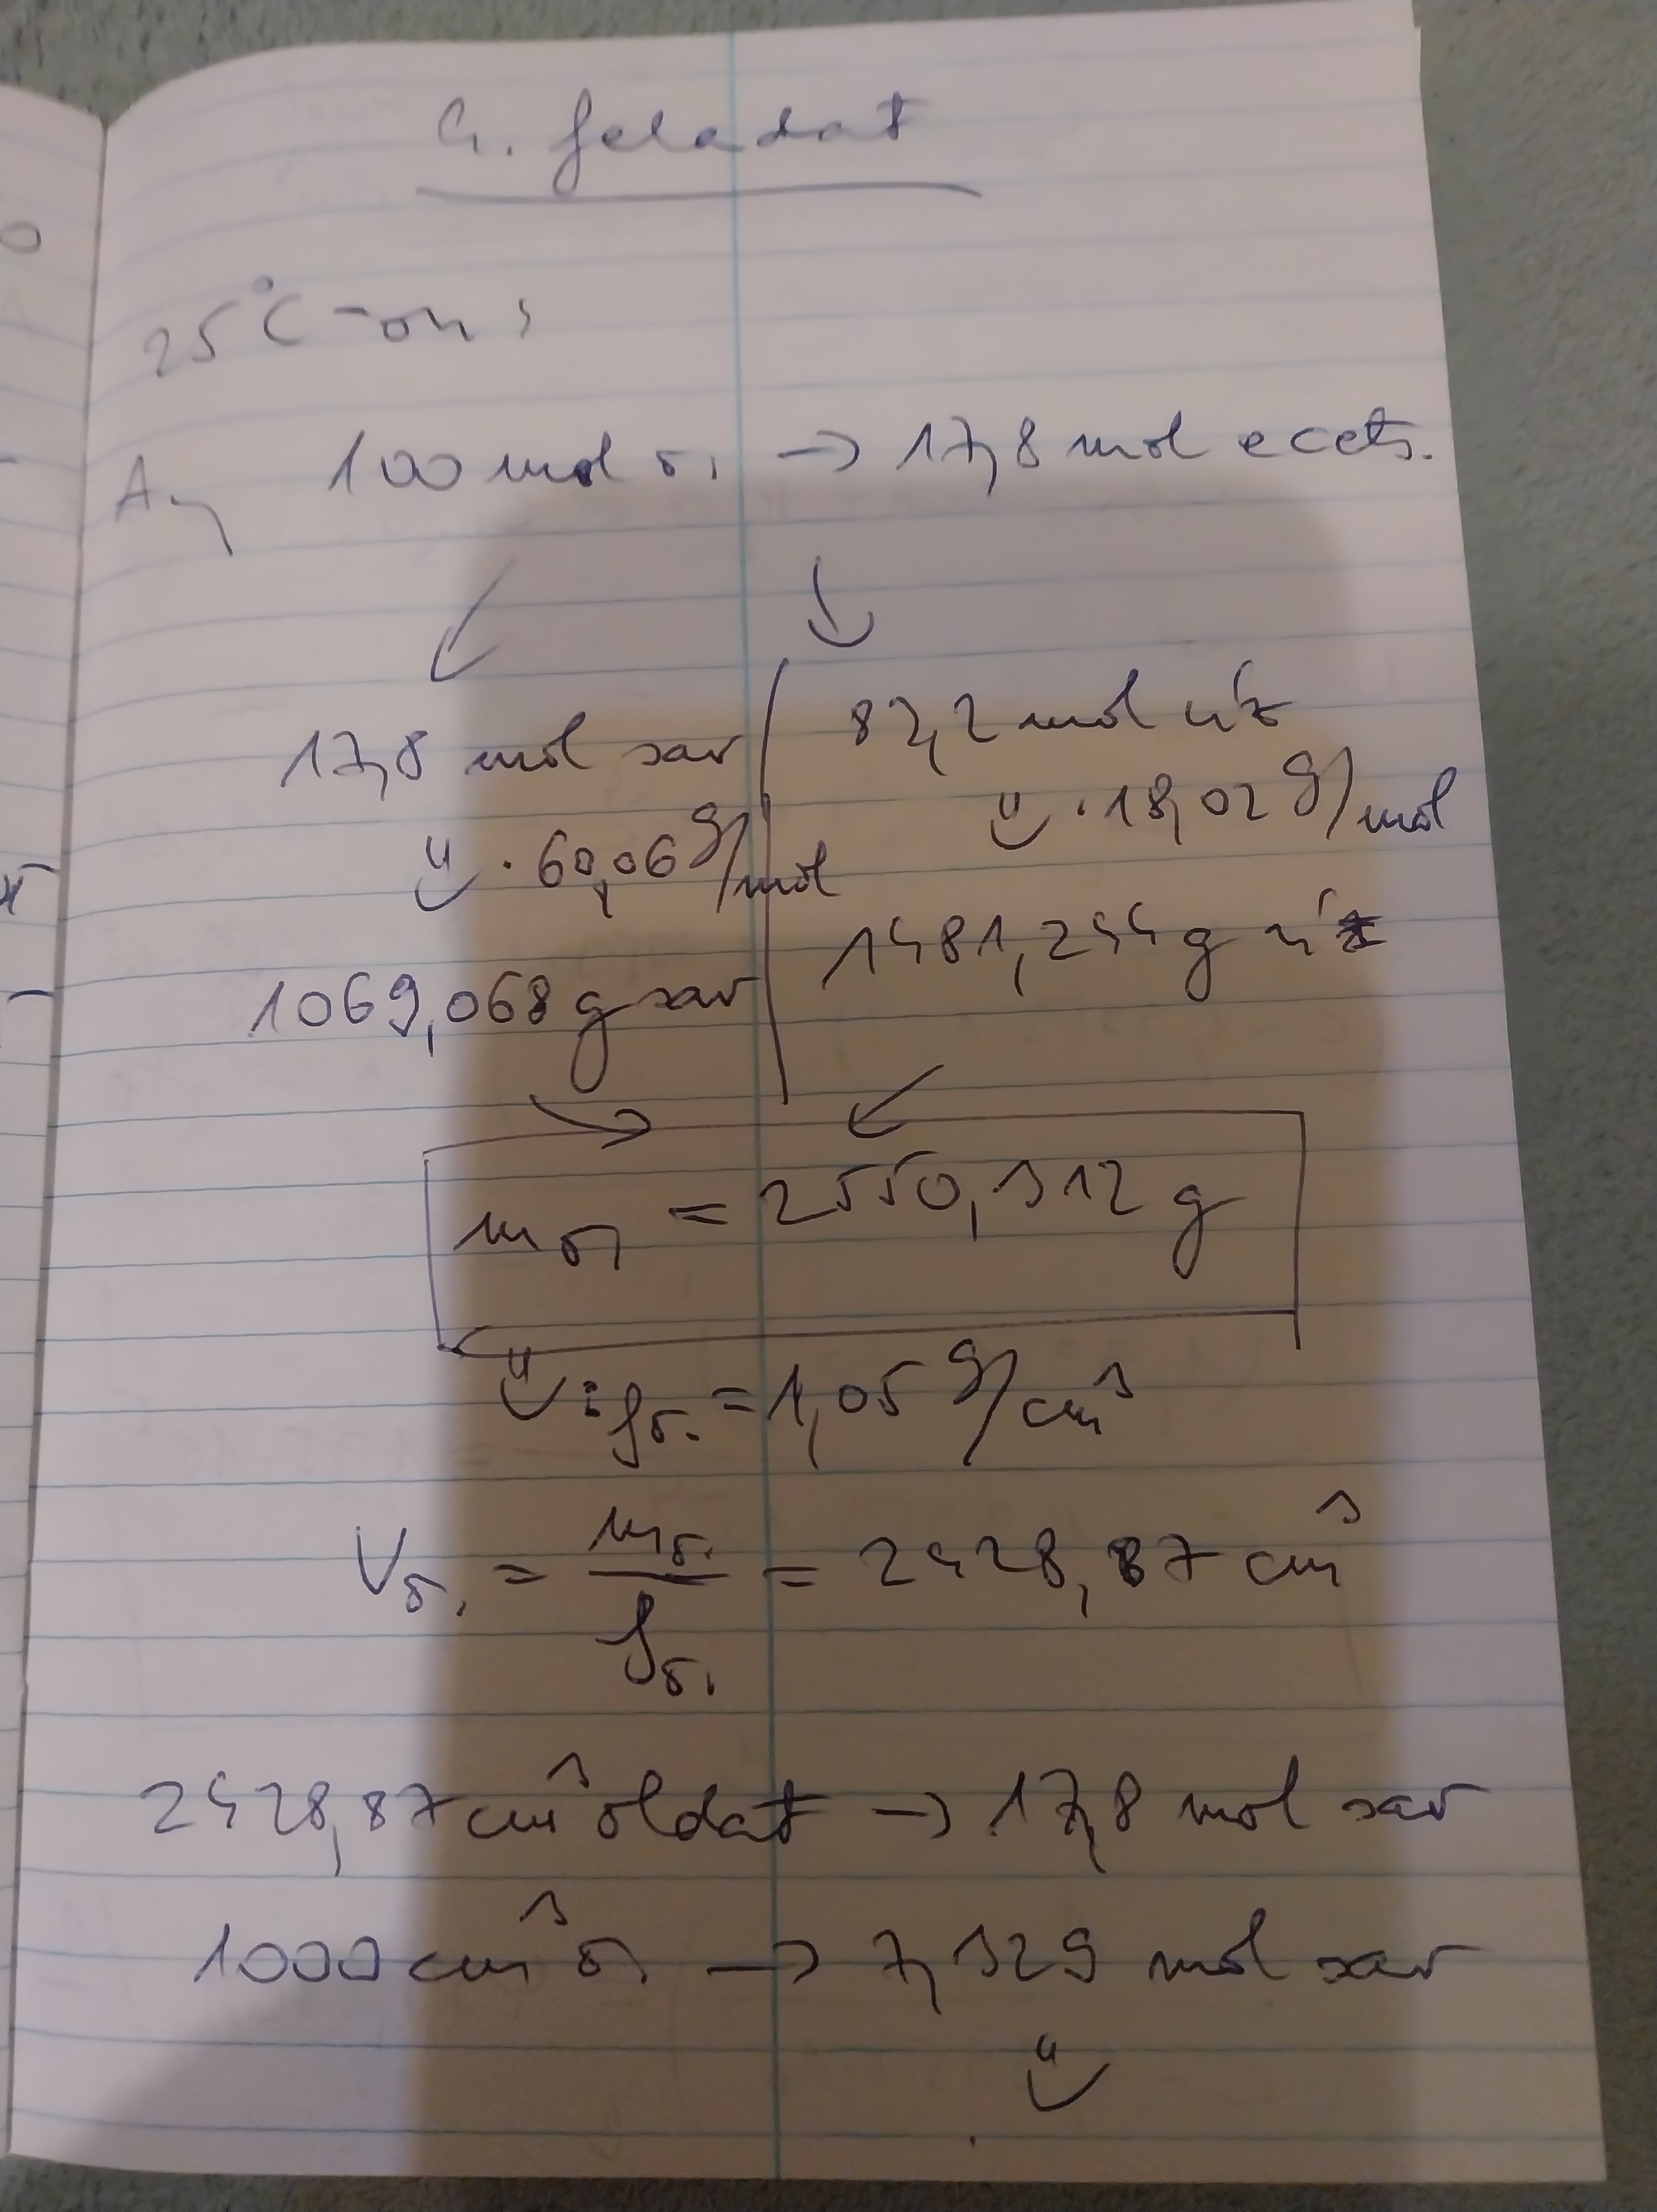 4. feladat
25°C-on,
A, 100 mol o. → 17,8 mol ecets.
17,8 mol sav
82,2 mol víz
· 60,06 g/mol
· 18,02 g/mol
1069,068 g sav
1481,244 g víz
m o. = 2550,312 g
: ρ ö. = 1,05 g/cm³
V ö. = m ö. / ρ ö. = 2428,87 cm³
2428,87 cm³ oldat → 17,8 mol sav
1000 cm³ o. → 7,329 mol sav